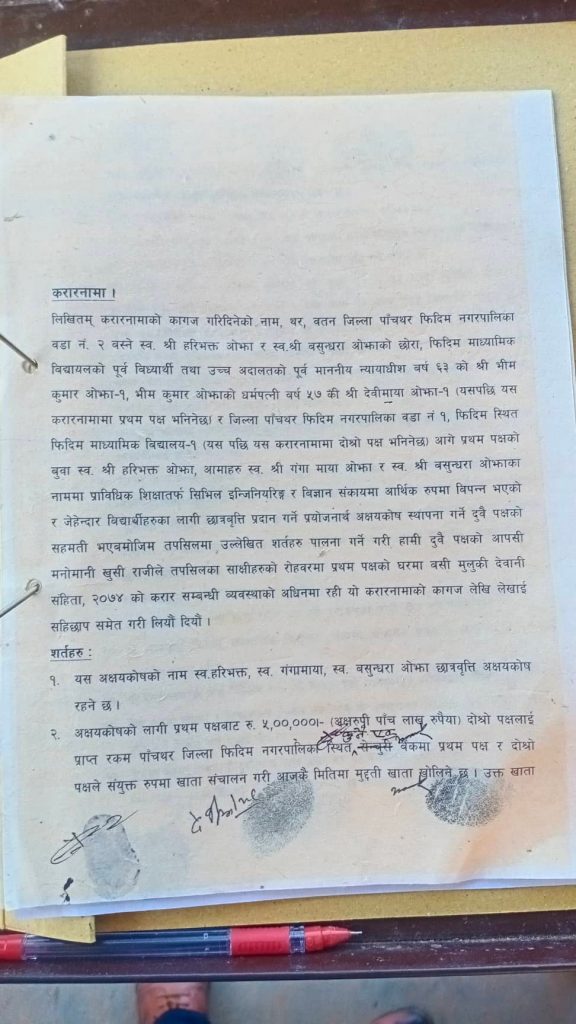 करारनामा ।
लिखितम् करारनामाको कागज गरिदिनेको नाम, थर, वतन जिल्ला पाँचथर फिदिम नगरपालिका
वडा नं. २ बस्ने स्व. श्री हरिभक्त ओझा र स्व.श्री बसुन्धरा ओझाको छोरा, फिदिम माध्यामिक
विद्यायलको पूर्व विध्यार्थी तथा उच्च अदालतको पूर्व माननीय न्यायाधीश वर्ष ६३ को श्री भीम
कुमार ओझा-१, भीम कुमार ओझाको धर्मपत्नी वर्ष ५७ की श्री देवीमाया ओझा-१ (यसपछि यस
करारनामामा प्रथम पक्ष भनिनेछ) र जिल्ला पाँचथर फिदिम नगरपालिका वडा नं १, फिदिम स्थित
फिदिम माध्यामिक विद्यालय-१ (यस पछि यस करारनामामा दोश्रो पक्ष भनिनेछ) आगे प्रथम पक्षको
बुवा स्व. श्री हरिभक्त ओझा, आमाहरु स्व. श्री गंगा माया ओझा र स्व. श्री बसुन्धरा ओझाका
नाममा प्राविधिक शिक्षातर्फ सिभिल इन्जिनियरिङ्ग र विज्ञान संकायमा आर्थिक रुपमा विपन्न भएको
र जेहेन्दार विद्यार्थीहरुका लागी छात्रवृत्ति प्रदान गर्ने प्रयोजनार्थ अक्षयकोष स्थापना गर्ने दुवै पक्षको
सहमती भएबमोजिम तपसिलमा उल्लेखित शर्तहरु पालना गर्ने गरी हामी दुवै पक्षको आपसी
मनोमानी खुसी राजीले तपसिलका साक्षीहरुको रोहवरमा प्रथम पक्षको घरमा वसी मुलुकी देवानी
संहिता, २०७४ को करार सम्बन्धी व्यवस्थाको अधिनमा रही यो करारनामाको कागज लेखि लेखाई
सहिछाप समेत गरी लियौं दियौं ।
शर्तहरु :
१. यस अक्षयकोषको नाम स्व.हरिभक्त, स्व. गंगामाया, स्व. बसुन्धरा ओझा छात्रवृत्ति अक्षयकोष
रहने छ ।
२. अक्षयकोषको लागी प्रथम पक्षबाट रु. ५,००,०००।- (अक्षरुपी पाँच लाख रुपैया) दोश्रो पक्षलाई
प्राप्त रकम पाँचथर जिल्ला फिदिम नगरपालिका स्थित सेन्चुरी बैंकमा प्रथम पक्ष र दोश्रो
पक्षले संयुक्त रुपमा खाता संचालन गरी आजकै मितिमा मुद्दती खाता खोलिने छ । उक्त खाता